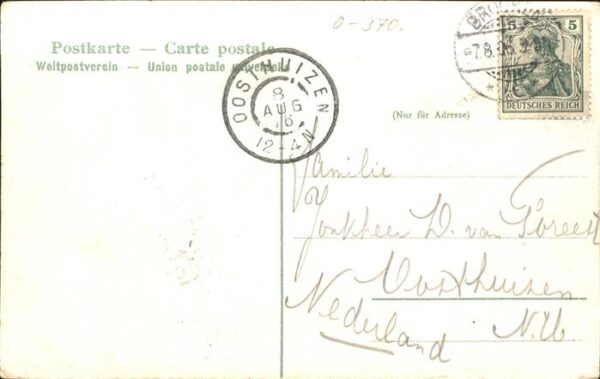 0-370.
Postkarte — Carte postale
Weltpostverein — Union postale universelle
5 5
-7.8.06. 3-
DEUTSCHES REICH
OOSTHUIZEN
8
AUG
12-4N
(Nur für Adresse)
Familie
Jonkheer D. van Foreest
Oosthuizen
Nederland N.H.